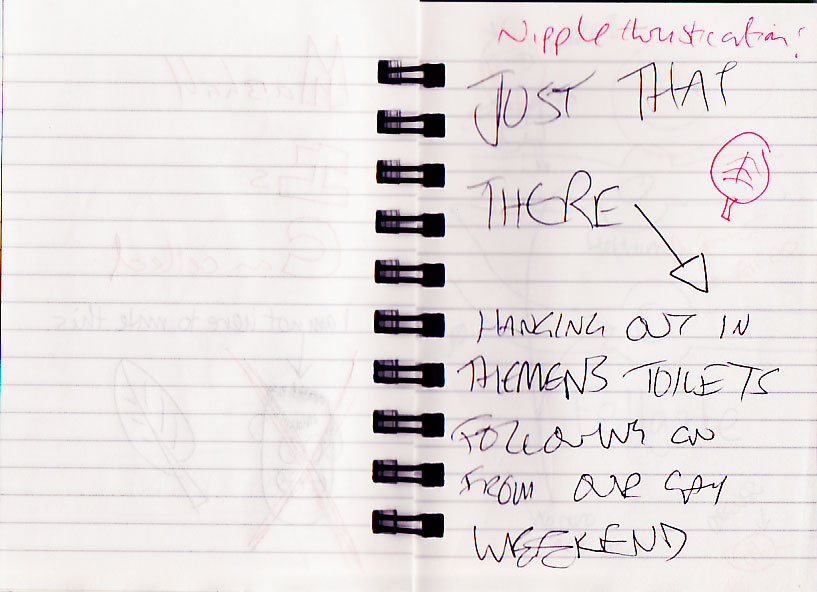 Nipple thrustication!
JUST THAT
THERE
HANGING OUT IN
THE MENS TOILETS
FOLLOWING ON
FROM OUR GAY
WEEKEND